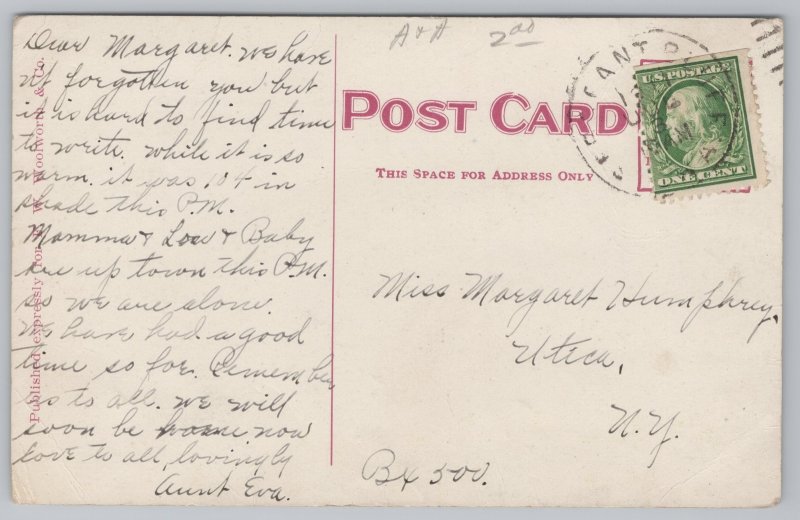 Dear Margaret. We have
not forgotten you but
it is hard to find time
to write. while it is so
warm. it was 104 in
shade this P.M.
Mamma & Lou & Baby
are up town this P.M.
so we are alone.
We have had a good
time so far. Remember
us to all. we will
soon be home now
love to all, lovingly
Aunt Eva.
Published expressly for F. W. Woolworth & Co.
A & A 2.00
POST CARD
THIS SPACE FOR ADDRESS ONLY
SCRANTON PA
U.S. POSTAGE
ONE CENT
Miss Margaret Humphrey.
Utica,
N.Y.
Bx 500.